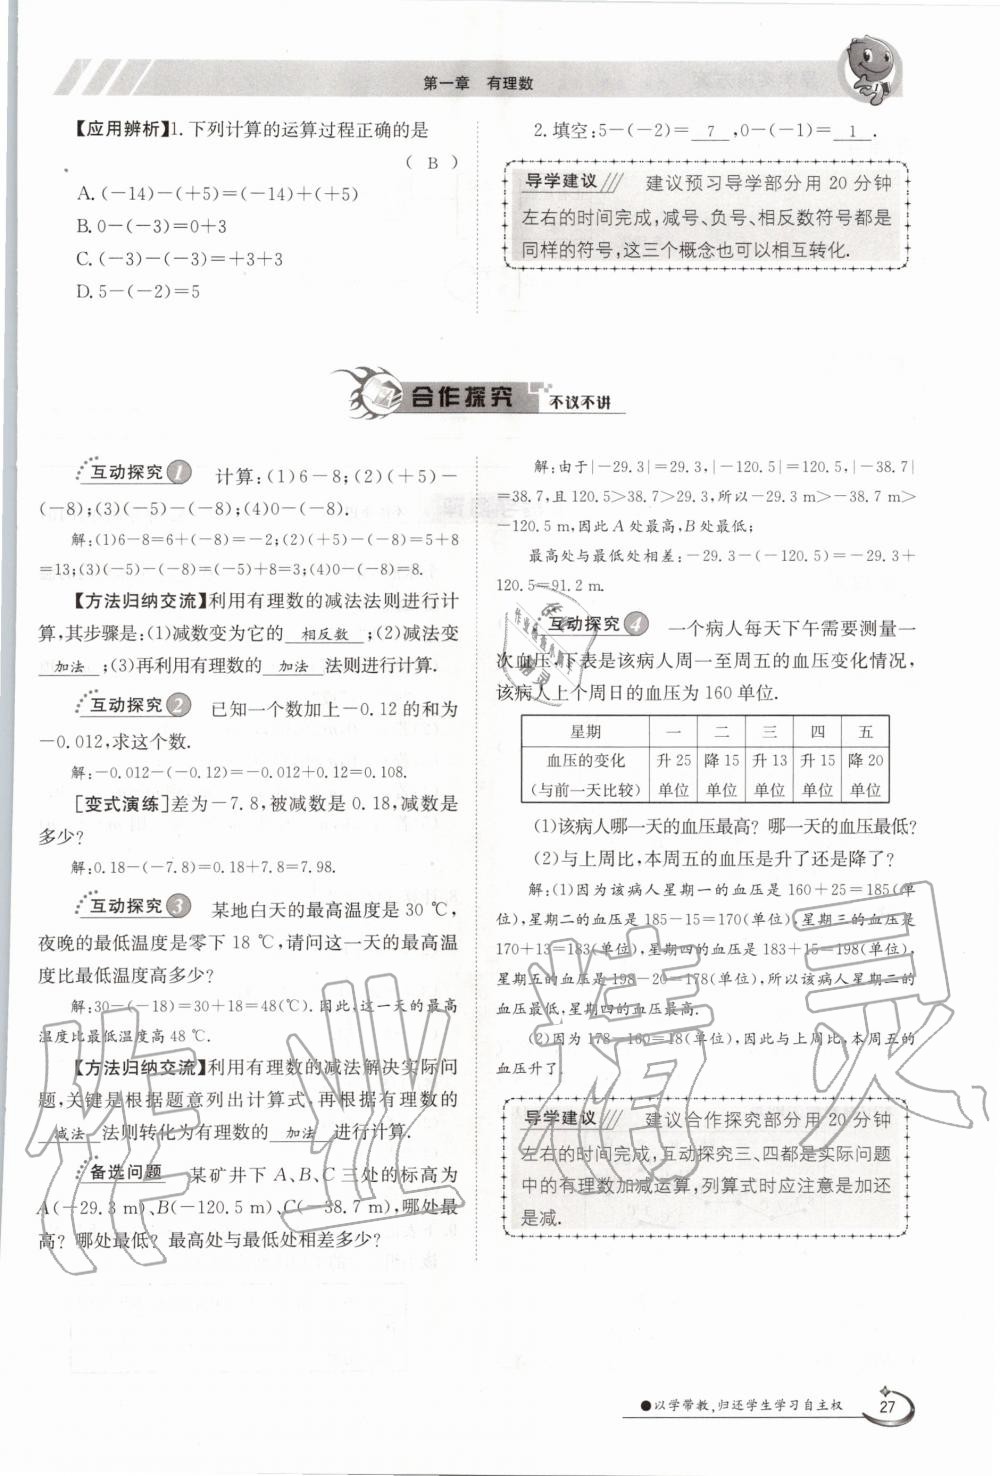 第一章　有理数
【应用辨析】1.下列计算的运算过程正确的是
（ B ）
A.(－14)－(＋5)＝(－14)＋(＋5)
B.0－(－3)＝0＋3
C.(－3)－(－3)＝＋3＋3
D.5－(－2)＝5
2.填空:5－(－2)＝ 7 ,0－(－1)＝ 1 .
导学建议/// 建议预习导学部分用 20 分钟
左右的时间完成,减号、负号、相反数符号都是
同样的符号,这三个概念也可以相互转化.
合作探究 不议不讲
互动探究 1 计算:(1)6－8;(2)(＋5)－
(－8);(3)(－5)－(－8);(4)0－(－8).
解:(1)6－8＝6＋(－8)＝－2;(2)(＋5)－(－8)＝5＋8
＝13;(3)(－5)－(－8)＝(－5)＋8＝3;(4)0－(－8)＝8.
【方法归纳交流】利用有理数的减法法则进行计
算,其步骤是:(1)减数变为它的 相反数 ;(2)减法变
加法 ;(3)再利用有理数的 加法 法则进行计算.
互动探究 2 已知一个数加上－0.12 的和为
－0.012,求这个数.
解:－0.012－(－0.12)＝－0.012＋0.12＝0.108.
[变式演练]差为－7.8,被减数是 0.18,减数是
多少?
解:0.18－(－7.8)＝0.18＋7.8＝7.98.
互动探究 3 某地白天的最高温度是 30 ℃,
夜晚的最低温度是零下 18 ℃,请问这一天的最高温
度比最低温度高多少?
解:30－(－18)＝30＋18＝48(℃).因此,这一天的最高
温度比最低温度高 48 ℃.
【方法归纳交流】利用有理数的减法解决实际问
题,关键是根据题意列出计算式,再根据有理数的
减法 法则转化为有理数的 加法 进行计算.
备选问题 某矿井下 A、B、C 三处的标高为
A(－29.3 m)、B(－120.5 m)、C(－38.7 m),哪处最
高? 哪处最低? 最高处与最低处相差多少?
解:由于|－29.3|＝29.3,|－120.5|＝120.5,|－38.7|
＝38.7,且 120.5＞38.7＞29.3,所以－29.3 m＞－38.7 m＞
－120.5 m,因此 A 处最高,B 处最低;
最高处与最低处相差:－29.3－(－120.5)＝－29.3＋
120.5＝91.2 m.
互动探究 4 一个病人每天下午需要测量一
次血压,下表是该病人周一至周五的血压变化情况,
该病人上个周日的血压为 160 单位.
星期 一 二 三 四 五
血压的变化 升 25 降 15 升 13 升 15 降 20
(与前一天比较) 单位 单位 单位 单位 单位
(1)该病人哪一天的血压最高? 哪一天的血压最低?
(2)与上周比,本周五的血压是升了还是降了?
解:(1)因为该病人星期一的血压是 160＋25＝185(单
位),星期二的血压是 185－15＝170(单位),星期三的血压是
170＋13＝183(单位),星期四的血压是 183＋15＝198(单位),
星期五的血压是 198－20＝178(单位),所以该病人星期二的
血压最低,星期四的血压最高.
(2)因为 178－160＝18(单位),因此与上周比,本周五的
血压升了.
导学建议/// 建议合作探究部分用 20 分钟
左右的时间完成,互动探究三、四都是实际问题
中的有理数加减运算,列算式时应注意是加还
是减.
作业精灵
●以学带教,归还学生学习自主权 27